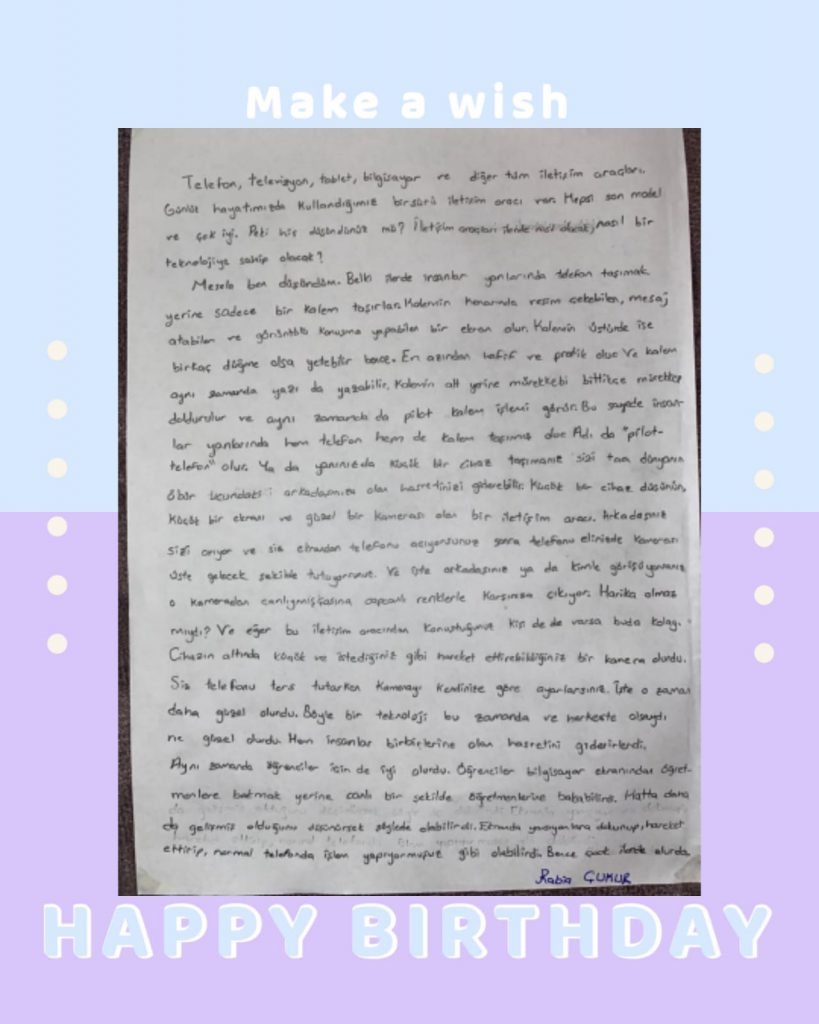 Make a wish
Telefon, televizyon, tablet, bilgisayar ve diğer tüm iletişim araçları.
Günlük hayatımızda kullandığımız birsürü iletişim aracı var. Hepsi son model
ve çok iyi. Peki hiç düşündünüz mü? İletişim araçları ilerde nasıl olacak, nasıl bir
teknolojiye sahip olacak?
Mesela ben düşündüm. Belki ilerde insanlar yanlarında telefon taşımak
yerine sadece bir kalem taşırlar. Kalemin kenarında resim çekebilen, mesaj
atabilen ve görüntülü konuşma yapabilen bir ekran olur. Kalemin üstünde ise
birkaç düğme olsa yetebilir bence. En azından hafif ve pratik olur. Ve kalem
aynı zamanda yazı da yazabilir. Kalemin alt yerine mürekkebi bittikçe mürekkep
doldurulur ve aynı zamanda da pilot kalem işlemi görür. Bu sayede insan-
lar yanlarında hem telefon hem de kalem taşımış olur. Adı da "pilot-
telefon" olur. Ya da yanınızda küçük bir cihaz taşımanız sizi taa dünyanın
öbür ucundaki arkadaşınıza olan hasretinizi giderebilir. Küçük bir cihaz düşünün,
küçük bir ekranı ve güzel bir kamerası olan bir iletişim aracı. Arkadaşınız
sizi arıyor ve siz ekrandan telefonu açıyorsunuz sonra telefonu elinizde kamerası
üste gelecek şekilde tutuyorsunuz. Ve işte arkadaşınız ya da kimle görüşüyorsanız
o kameradan canlıymışçasına capcanlı renklerle karşınıza çıkıyor. Harika olmaz
mıydı? Ve eğer bu iletişim aracından konuştuğunuz kişi de de varsa buda kolay.
Cihazın altında küçük ve istediğiniz gibi hareket ettirebildiğiniz bir kamera olurdu.
Siz telefonu ters tutarken kamerayı kendinize göre ayarlarsınız. İşte o zaman
daha güzel olurdu. Böyle bir teknoloji bu zamanda ve herkeste olsaydı
ne güzel olurdu. Hem insanlar birbirlerine olan hasretini giderirlerdi.
Aynı zamanda öğrenciler için de iyi olurdu. Öğrenciler bilgisayar ekranından öğret-
menlere bakmak yerine canlı bir şekilde öğretmenlerine bakabilirdi. Hatta daha
da gelişmiş olduğunu düşünürsek şöylede olabilirdi. Ekranda yansıyanlara dokunup, hareket
ettirip, normal telefonda işlem yapıyormuşuz gibi olabilirdi. Bence çok ilerde olurdu.
Rabia ÇUMUR
HAPPY BIRTHDAY